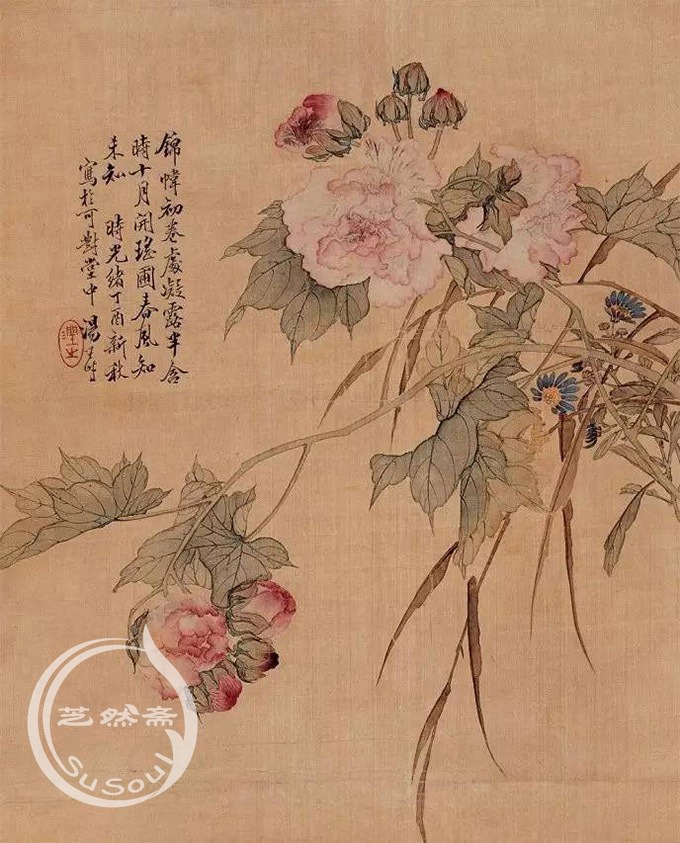 錦幃初卷處凝露半含
時十月開瑤圃春風知
未知 時光緒丁酉新秋
寫於可對堂中 湯世澍
潤之
芝然斋
SuSoul